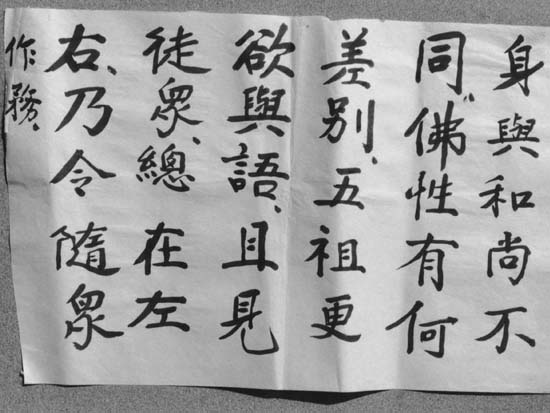 身與和尚不
同佛性有何
差别、五祖更
欲與語、且見
徒眾、總在左
右、乃令隨眾
作務、